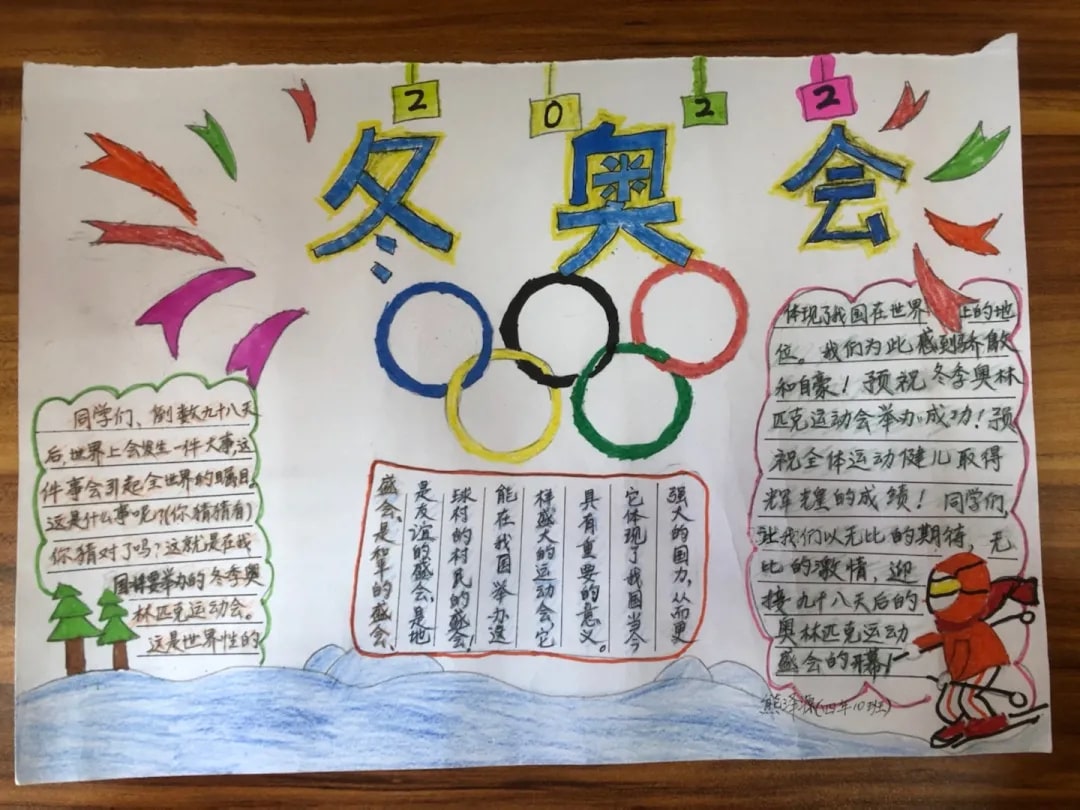 2 0 2 2
冬奥会
同学们、倒数九十八天
后,世界上会发生一件大事,这
件事会引起全世界的瞩目。
这是什么事呢?(你猜猜看)
你猜对了吗?这就是在我
国将要举办的冬季奥
林匹克运动会。
这是世界性的
盛会、是和平的盛会、
是友谊的盛会、是地
球村的村民的盛会!
能在我国举办这
样盛大的运动会,它
具有重要的意义。
它体现了我国当今
强大的国力,从而更
体现了我国在世界上的地
位。我们为此感到骄傲
和自豪!预祝冬季奥林
匹克运动会举办成功!预
祝全体运动健儿取得
辉煌的成绩!同学们,
让我们以无比的期待,无
比的激情,迎
接九十八天后的
奥林匹克运动
盛会的开幕!
熊泽源(四年10班)